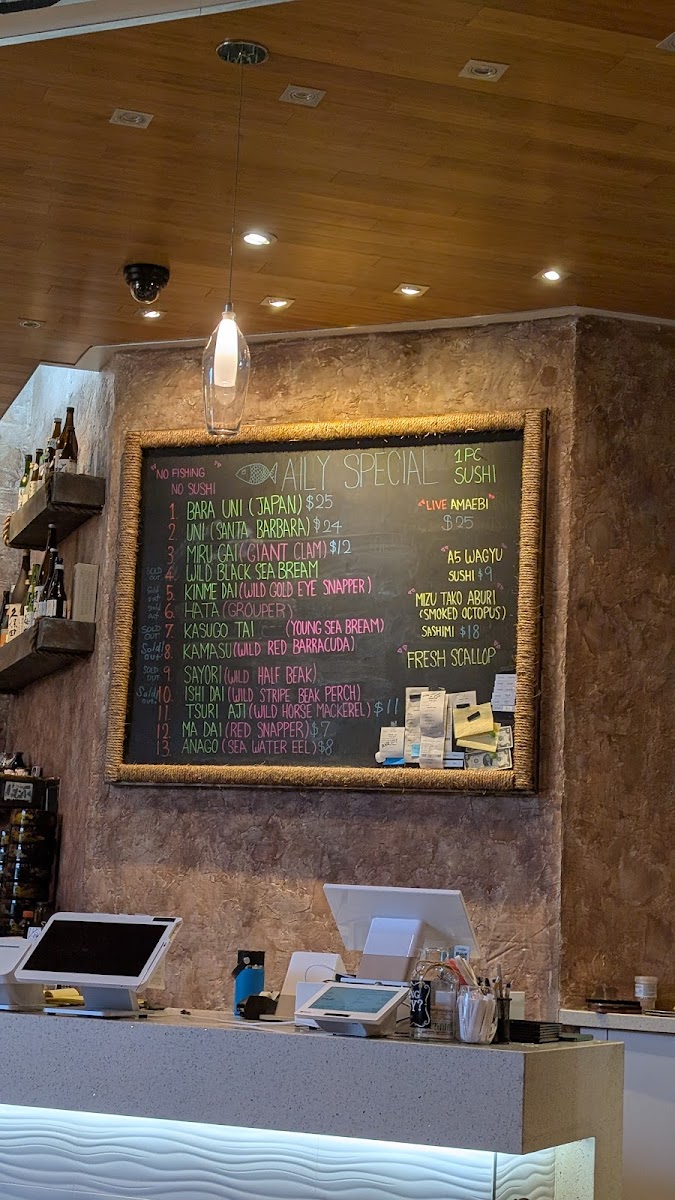 "NO FISHING
NO SUSHI"
AILY SPECIAL
1PC SUSHI
1 BARA UNI (JAPAN) $25
2. UNI (SANTA BARBARA) $24
3 MIRU GAI (GIANT CLAM) $12
SOLD OUT 4. WILD BLACK SEA BREAM
Sold out 5 KINME DAI (WILD GOLD EYE SNAPPER)
Sold out 6. HATA (GROUPER)
SOLD OUT 7 KASUGO TAI (YOUNG SEA BREAM)
Sold out! 8. KAMASU (WILD RED BARRACUDA)
SOLD OUT 9 SAYORI (WILD HALF BEAK)
Sold out 10. ISHI DAI (WILD STRIPE BEAK PERCH)
11. TSURI AJI (WILD HORSE MACKEREL) $11
12 MA DAI (RED SNAPPER) $7
13. ANAGO (SEA WATER EEL) $8
"LIVE AMAEBI"
$25
"A5 WAGYU
SUSHI $9
"MIZU TAKO ABURI
(SMOKED OCTOPUS)
SASHIMI $18
"FRESH SCALLOP"